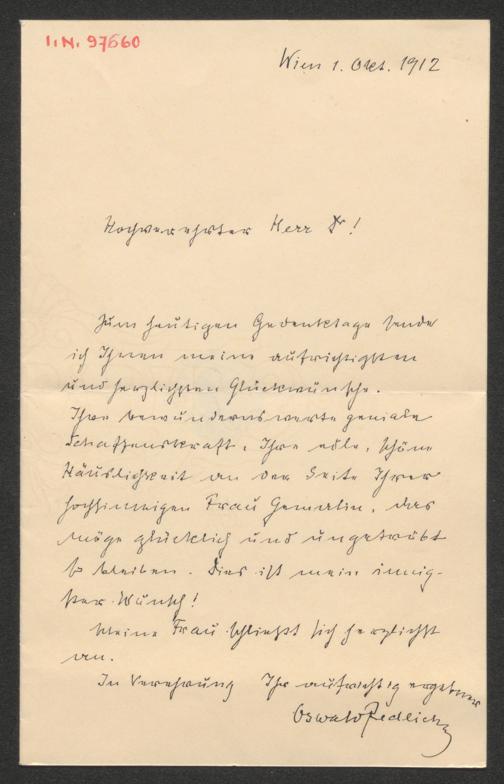 I.N. 97660
Wien 1. Okt. 1912
Hochverehrter Herr Dr!
Zum heutigen Gedenktage sende
ich Ihnen meine aufrichtigsten
und herzlichsten Glückwünsche.
Ihre bewundernswerte geniale
Schaffenskraft, Ihre edle, schöne
Häuslichkeit an der Seite Ihrer
hochsinnigen Frau Gemalin, das
möge glücklich und ungetrübt
so bleiben. Dies ist mein innig-
ster Wunsch!
Meine Frau schließt sich herzlichst
an.
In Verehrung Ihr aufrichtig ergebener
Oswald Redlich